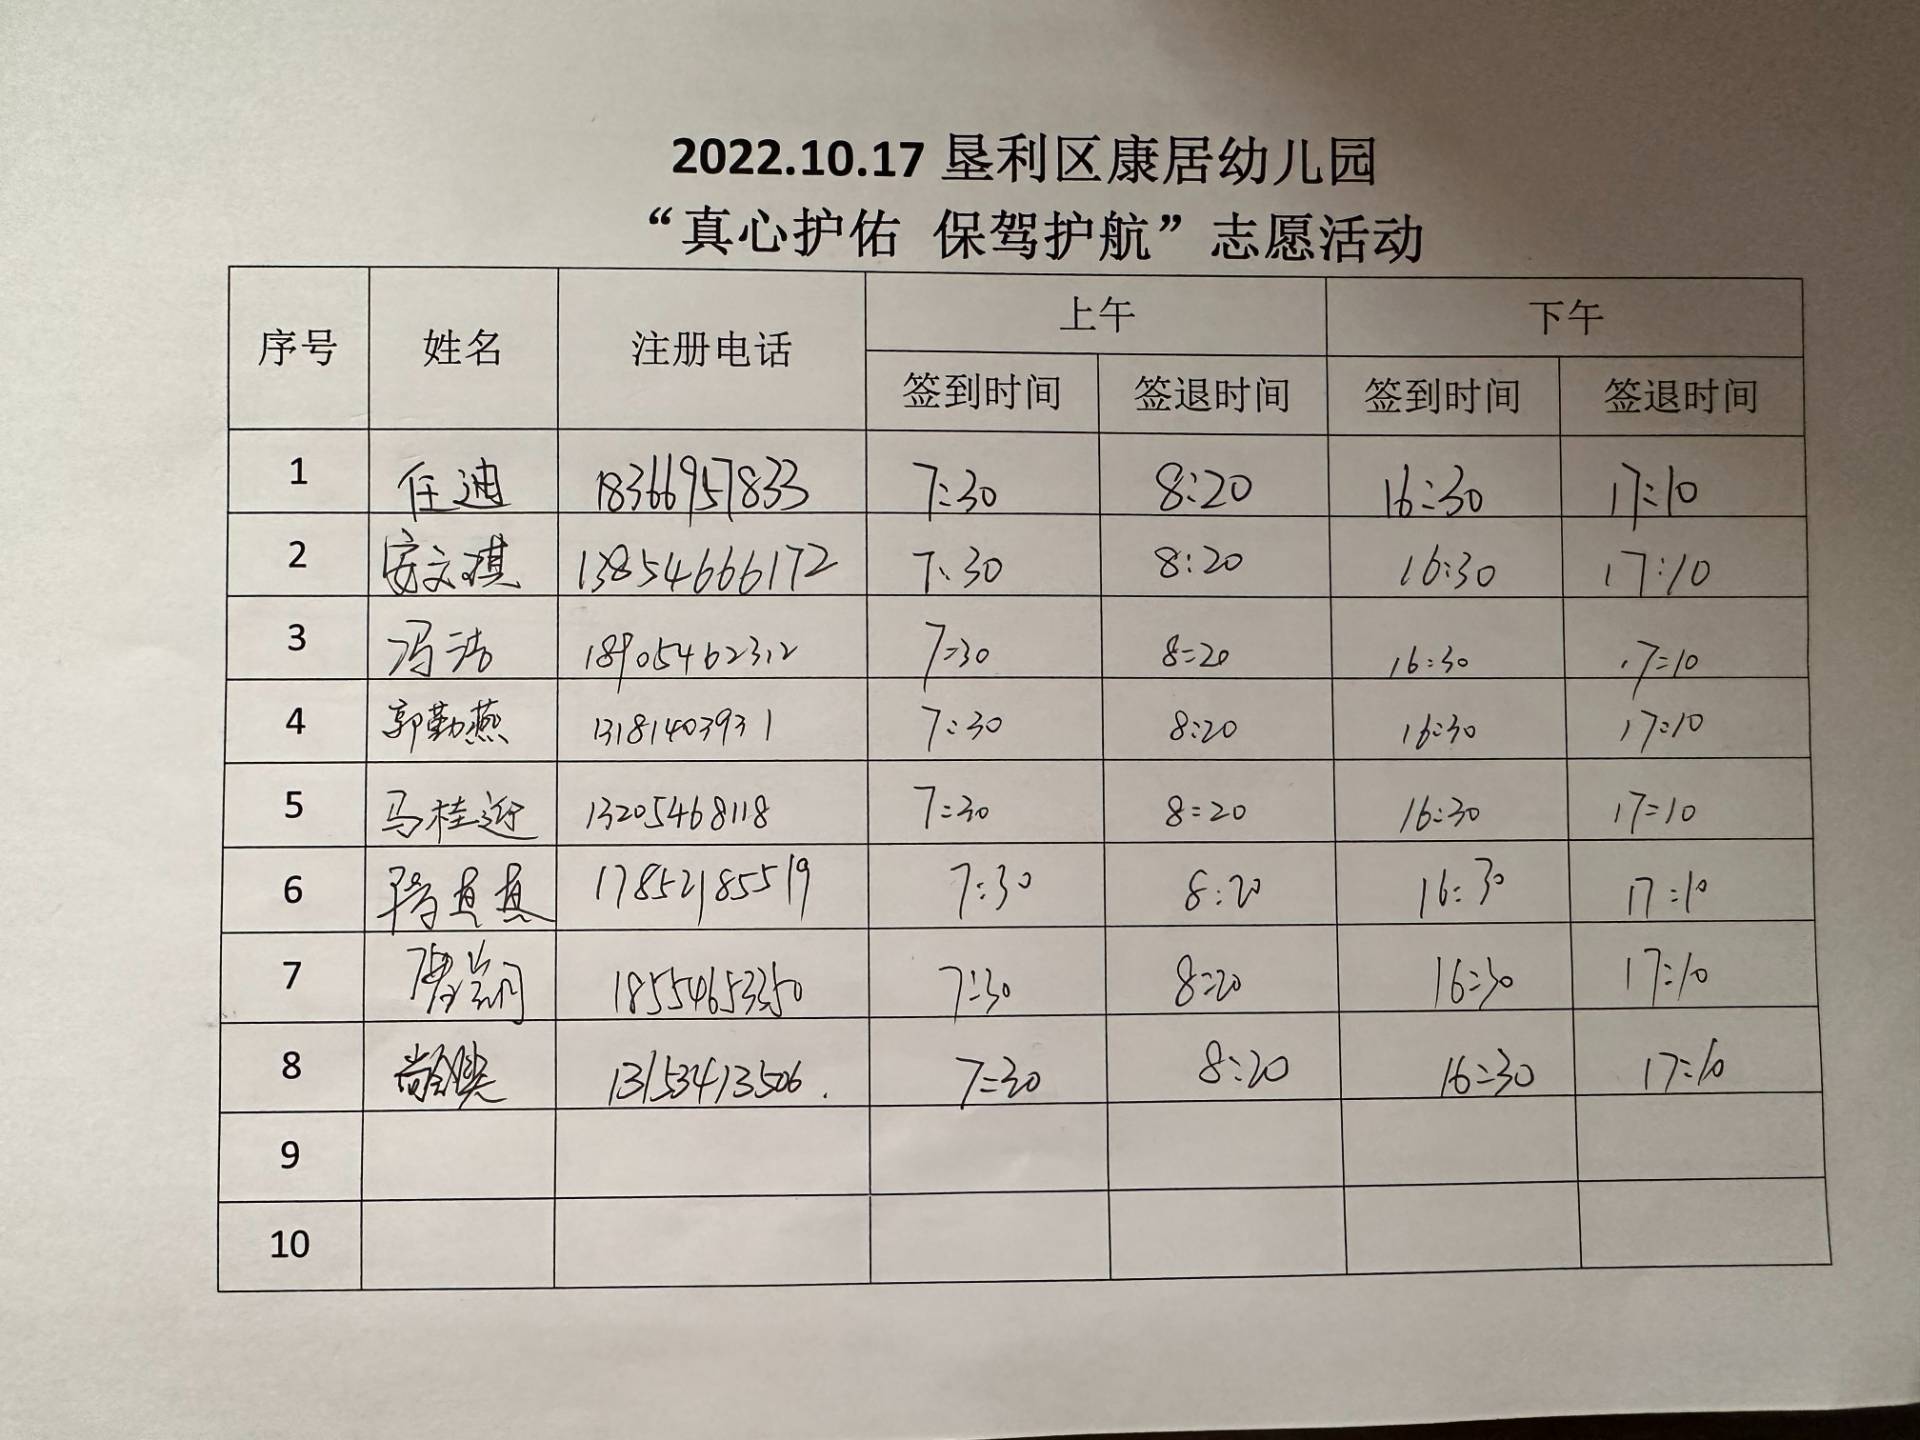 2022.10.17 垦利区康居幼儿园
“真心护佑 保驾护航”志愿活动
序号 姓名 注册电话 上午 下午
签到时间 签退时间 签到时间 签退时间
1 任迪 18366957833 7:30 8:20 16:30 17:10
2 安文琪 13854666172 7:30 8:20 16:30 17:10
3 冯洁 18905462312 7:30 8:20 16:30 17:10
4 郭勤燕 13181403931 7:30 8:20 16:30 17:10
5 马桂近 13205468118 7:30 8:20 16:30 17:10
6 17852185519 7:30 8:20 16:30 17:10
7 18554653350 7:30 8:20 16:30 17:10
8 13153413506. 7:30 8:20 16:30 17:10
9
10